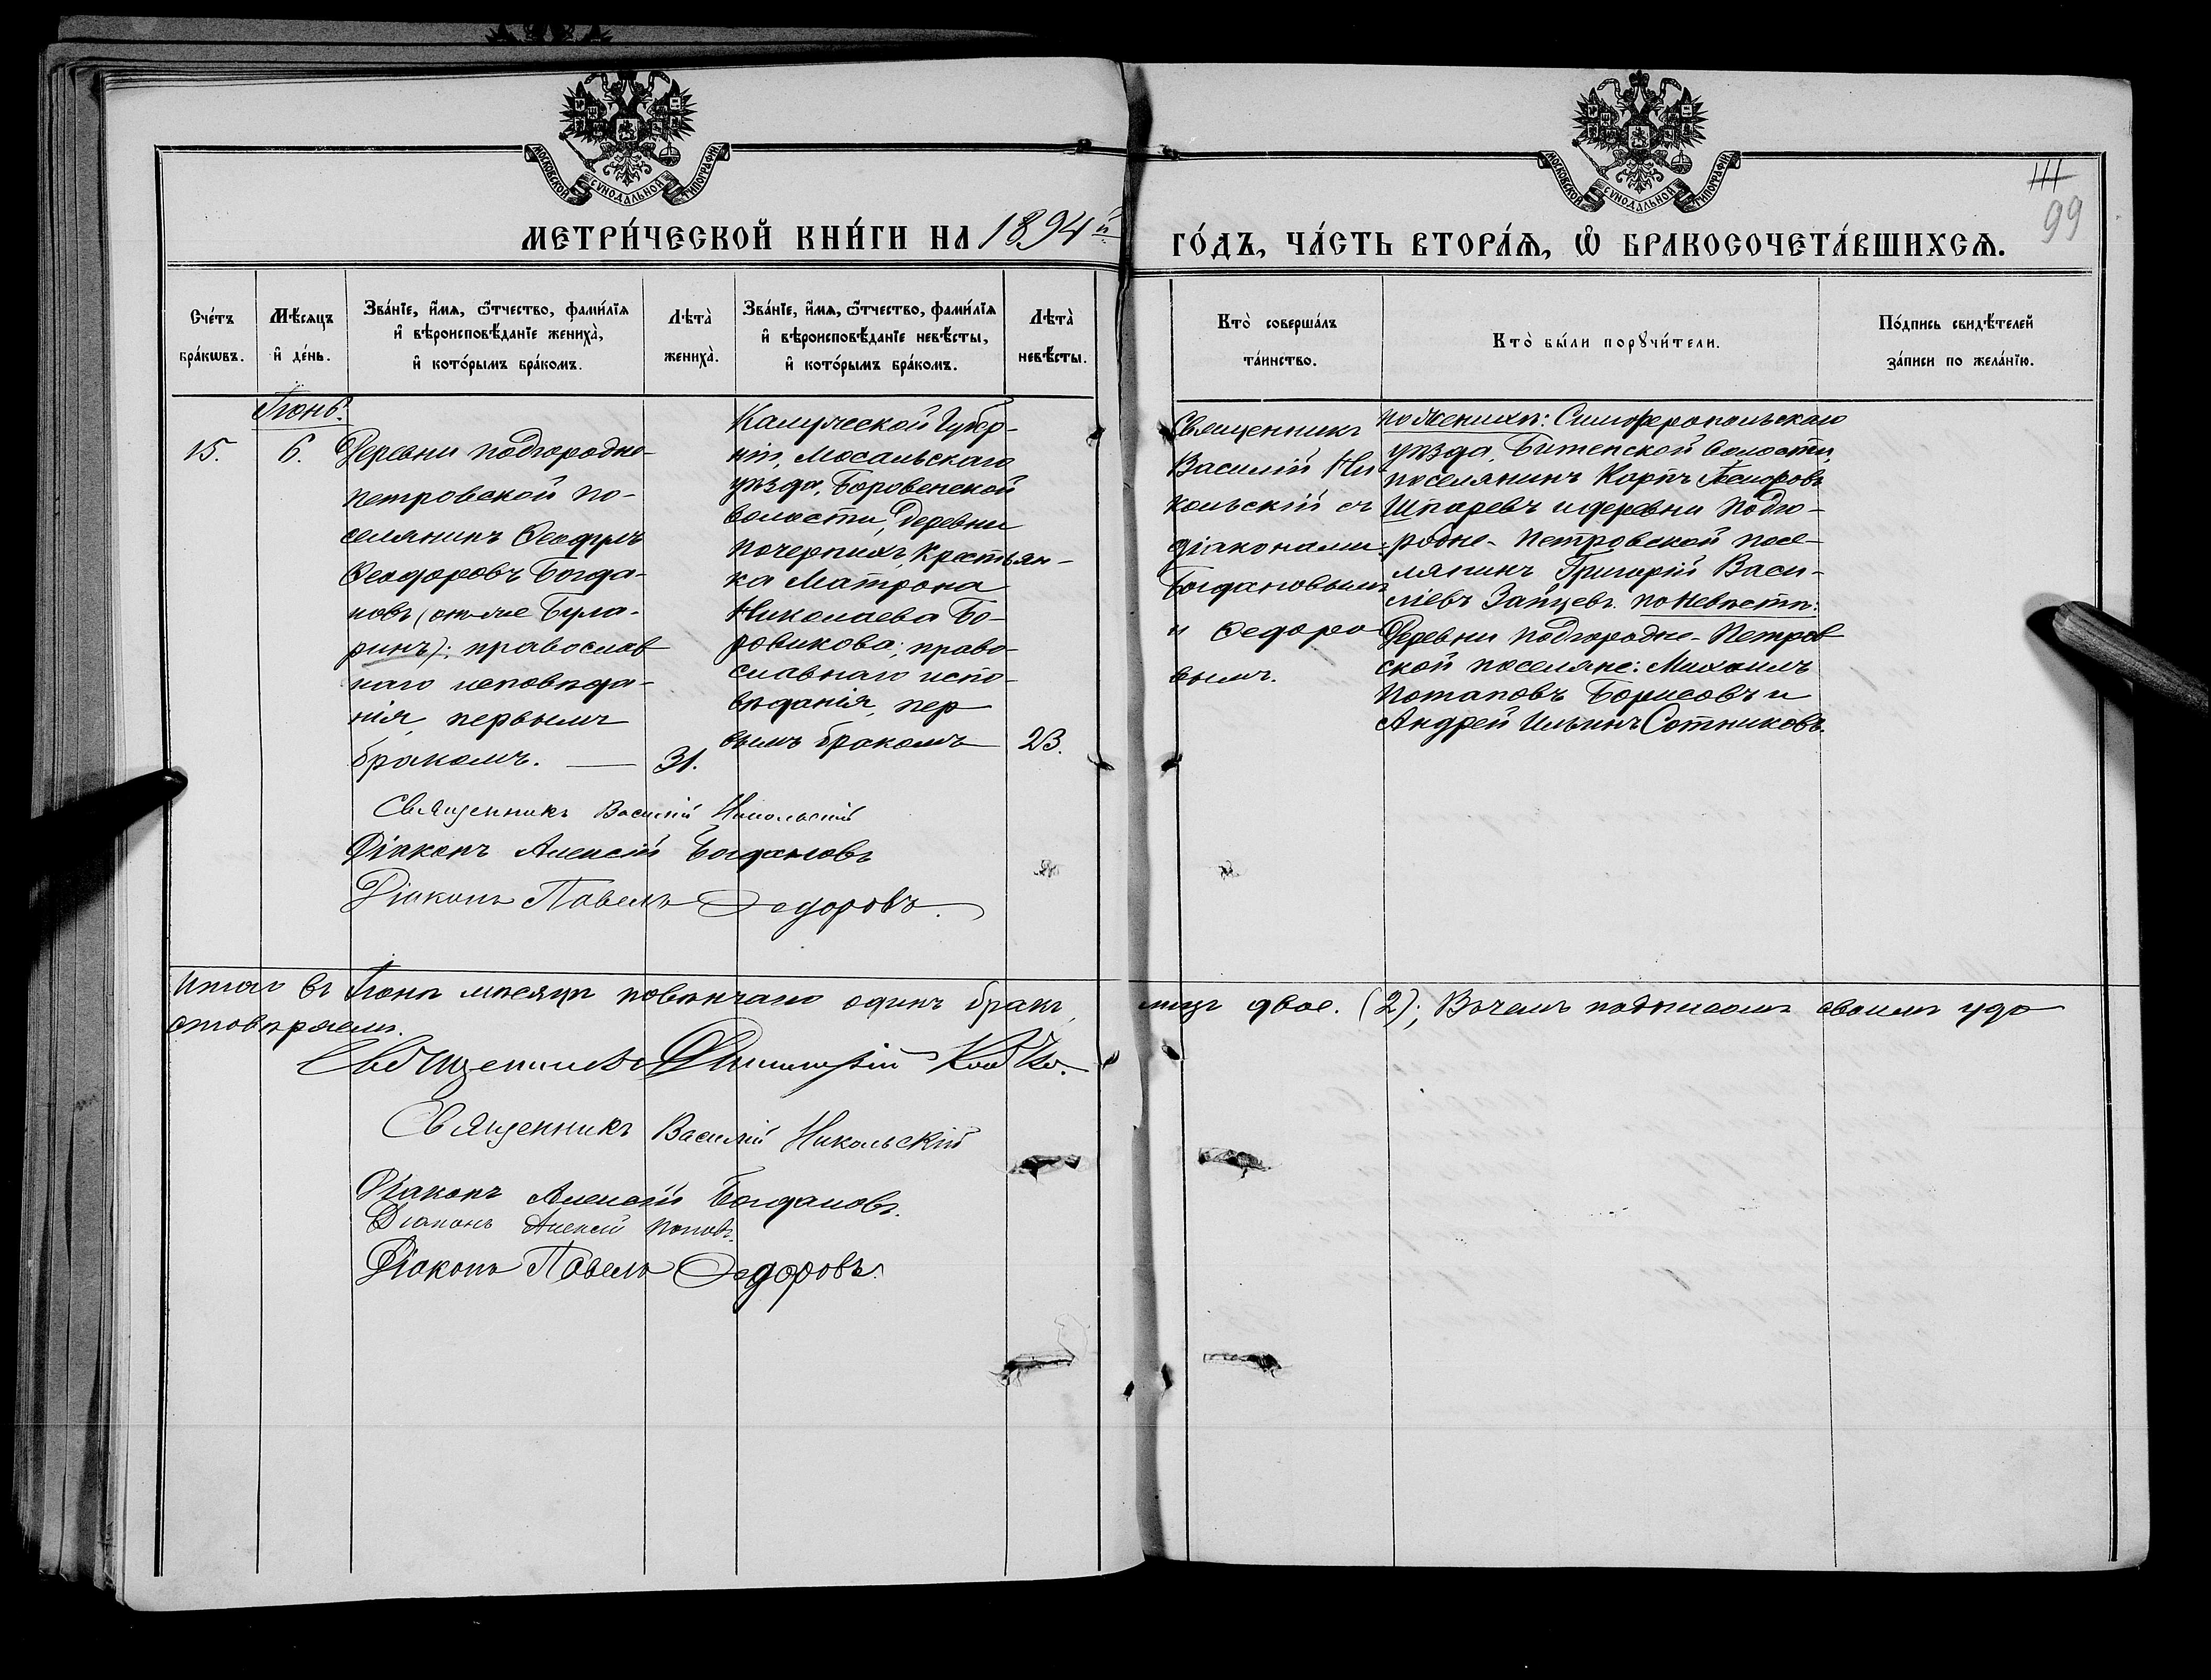 МОСКОВСКОЙ СѴНОДАЛЬНОЙ ТИПОГРАФІИ
МОСКОВСКОЙ СѴНОДАЛЬНОЙ ТИПОГРАФІИ
111
99
МЕТРИ́ЧЕСКОЙ КНИ́ГИ НА 1894й
ГО́ДЪ, ЧА́СТЬ ВТОРА́Ѧ, Ѿ БРАКОСОЧЕТА́ВШИХСѦ.
Сче́тъ
бра́кѡвъ.
Мѣ́сяцъ
и҆ де́нь.
Зва́нїе, и҆́мѧ, ѻ҆́тчество, фами́лїѧ
и҆ вѣроисповѣ́данїе жениха̀,
и҆ кото́рымъ бра́комъ.
Лѣта̀
жениха̀.
Зва́нїе, и҆́мѧ, ѻ҆́тчество, фами́лїѧ
и҆ вѣроисповѣ́данїе невѣ́сты,
и҆ кото́рымъ бра́комъ.
Лѣта̀
невѣ́сты.
Кто̀ соверша́лъ
та́инство.
Кто̀ бы́ли порꙋчи́тели.
По́дпись свидѣ́телей
за́писи по жела́нїю.
Іюнь.
15.
6.
Деревни Подгородно-
Петровской по-
селянинъ Ѳеофилъ
Ѳеодоровъ Богда-
новъ (онъ-же Була-
ринъ); православ
наго исповѣда-
нія, первымъ
бракомъ. —
31.
Калужеской Губер-
ніи, Мосальскаго
уѣзда, Боровенской
волости, деревни
Почерпихъ, крестьян-
ка Матрона
Николаева Бо-
ровикова; право-
славнаго испо-
вѣданія, пер
вымъ бракомъ
23.
Священникъ
Василій Ни
кольскій съ
діаконами:
Богдановымъ
и Ѳедоро
вымъ.
По женихѣ: Симферопольскаго
уѣзда, Битенской волости,
поселянинъ Карпъ
Шпаревъ и деревни Подго-
родне-Петровской посе-
лянинъ Григорій Васи-
ліевъ Зайцевъ. По невѣстѣ:
Деревни Подгородне-Петров
ской поселяне: Михаилъ
Потаповъ Борисовъ и
Андрей Ильинъ Сотниковъ.
Священникъ Василій Никольскій
Діаконъ Алексій Богдановъ
Діаконъ Павелъ Ѳедоровъ.
Итого въ Іюнѣ мѣсяцѣ повѣнчано одинъ бракъ, лицъ двое. (2); Въ чемъ подписомъ своимъ удо
стовѣряемъ.
Священникъ Димитрій
Священникъ Василій Никольскій
Діаконъ Алексій Богдановъ.
Діаконъ Алексій Поповъ.
Діаконъ Павелъ Ѳедоровъ.